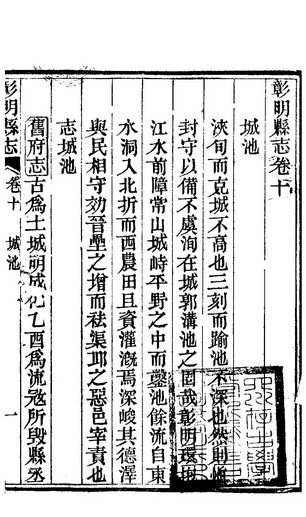 彰明縣志卷十
城池
浹旬而克城不高也三刻而踰池不深也然則慎
封守以備不虞洵在城郭溝池之固哉彰明環抱
江水前障常山城峙平野之中而鑿池餘流自東
水洞入北折而西農田且資灌漑焉深峻其德澤
與民相守効晉壘之增而祛渠邱之惡邑宰責也
志城池
舊府志古爲土城明成化乙酉爲流寇所毀縣丞
彰明縣志
卷十 城池
一